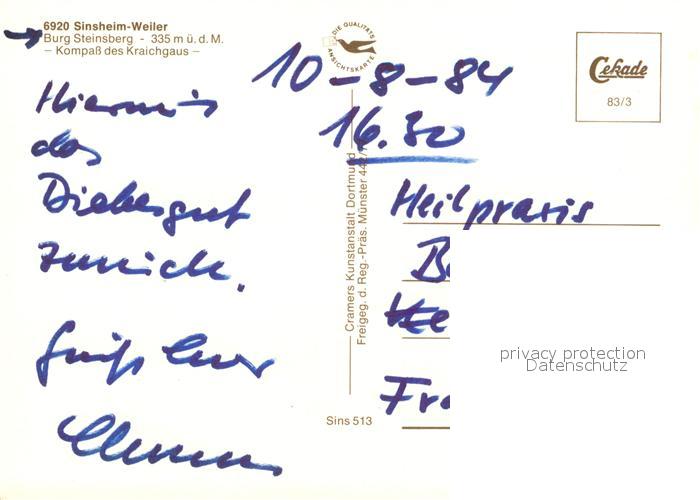 6920 Sinsheim-Weiler
Burg Steinsberg - 335 m ü. d. M.
– Kompaß des Kraichgaus –
DIE QUALITÄTS
ANSICHTSKARTE
Cekade
83/3
10-8-84
16.30
Hiermit
das
Diebesgut
zurück.
Gruß Euer
Cramers Kunstanstalt Dortmund
Freigeg. d. Reg.-Präs. Münster
Heilpraxis
privacy protection
Datenschutz
Sins 513